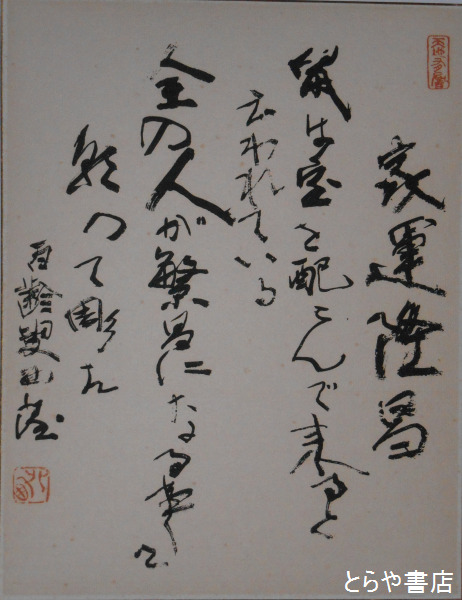 家運隆昌
鼠は宝を配こんで来ると
云われている
全の人が繁昌になる事を
願つて彫た
百齢叟
とらや書店